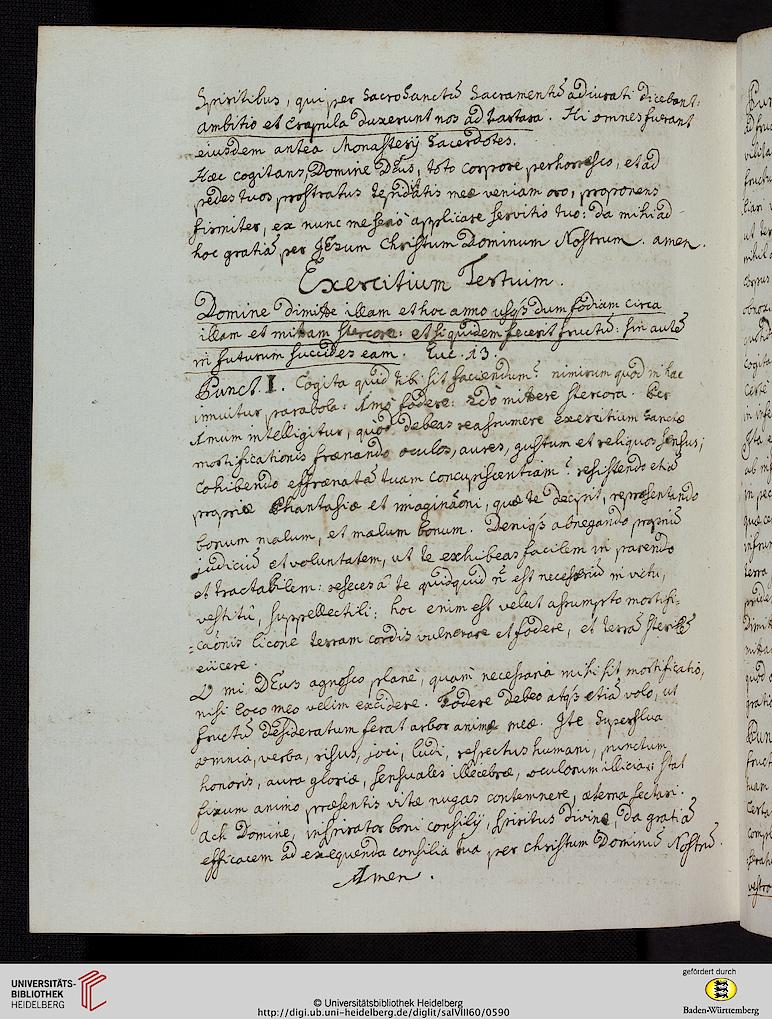 Spiritibus, qui per SacroSanctū Sacramentū adiurati dicebant:
ambitio et Crapula duxerunt nos ad tartara. Hi omnes fuerant
eiusdem antea Monasterij Sacerdotes.
Hæc cogitans, Domine DEus, toto corpore perhorresco, et ad
pedes tuos prostratus tepiditatis meæ veniam oro; proponens
firmiter, ex nunc me seriò applicare servitio tuo: da mihi ad
hoc gratiā per JEsum Christum Dominum Nostrum. amen.
Exercitium Tertium.
Domine dimitte illam et hoc anno usq3 dum fodiam circa
illam et mittam stercora: et siquidem fecerit fructū: sin autē
in futurum succides eam. Luc. 13.
Punct. I. Cogita quid tibi sit faciendum? nimirum quod in hac
innuitur parabola: Imò fodere: 2do mittere stercora. Per
Imum intelligitur, quòd debeas reassumere exercitium sanctæ
mortificationis frænando oculos, aures, gustum et reliquos sensus;
cohibendo effrænatā tuam concupiscentiam? resistendo etiā
propriæ Phantasiæ et imaginaōni, quæ te decipit, repræsentando
bonum malum, et malum bonum. Deniq3 abnegando propriū
judiciū et voluntatem, ut te exhibeas facilem in parendo
et tractabilem: reseces à te quidquid n̄ est necessariū in victu,
vestitu, suppellectili; hoc enim est velut assumpto mortifi=
=caōnis licone terram cordis vulnerare et fodere, et terrā sterilē
eiicere.
O mi DEus agnosco planè, quam necessaria mihi sit mortificatio,
nisi loco meo velim excidere. Fodere debeo atq3 etiā volo, ut
fructū desideratum ferat arbor animæ meæ. Ite superflua
omnia, verba, risus, joci, ludi, respectus humani, punctum
honoris, aura gloriæ, sensuales illecebræ, oculorum illicia: stat
fixum animo præsentis vitæ nugas contemnere, æterna sectari.
Ach Domine, inspirator boni consilij, spiritus divine, da gratiā
efficacem ad exequenda consilia tua per christum Dominū Nostrū.
Amen.
UNIVERSITÄTS-
BIBLIOTHEK
HEIDELBERG
© Universitätsbibliothek Heidelberg
http://digi.ub.uni-heidelberg.de/diglit/salVIII60/0590
gefördert durch
Baden-Württemberg